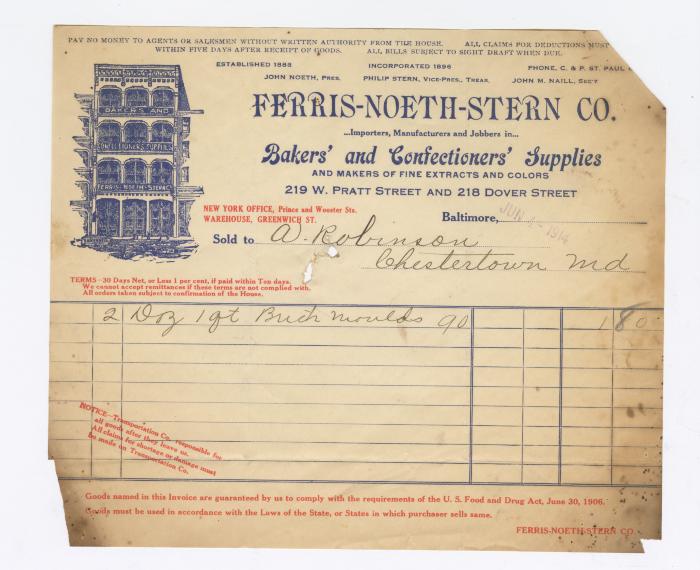 PAY NO MONEY TO AGENTS OR SALESMEN WITHOUT WRITTEN AUTHORITY FROM THE HOUSE. ALL CLAIMS FOR DEDUCTIONS MUST
WITHIN FIVE DAYS AFTER RECEIPT OF GOODS. ALL BILLS SUBJECT TO SIGHT DRAFT WHEN DUE.
ESTABLISHED 1883 INCORPORATED 1896 PHONE, C. & P. ST. PAUL
JOHN NOETH, PRES. PHILIP STERN, VICE-PRES., TREAS. JOHN M. NAILL, SEC'Y
FERRIS-NOETH-STERN CO.
...Importers, Manufacturers and Jobbers in...
Bakers' and Confectioners' Supplies
AND MAKERS OF FINE EXTRACTS AND COLORS
219 W. PRATT STREET AND 218 DOVER STREET
BAKERS AND
CONFECTIONERS SUPPLIES
FERRIS-NOETH-STERN CO
NEW YORK OFFICE, Prince and Wooster Sts.
WAREHOUSE, GREENWICH ST.
Baltimore, JUN 1914
Sold to A. Robinson
Chestertown Md
TERMS—30 Days Net, or Less 1 per cent, if paid within Ten days.
We cannot accept remittances if these terms are not complied with.
All orders taken subject to confirmation of the House.
2 Doz 1 qt Brick Moulds 90 1 80
NOTICE—Transportation Co. responsible for
all goods after they leave us.
All claims for shortage or damage must
be made on Transportation Co.
Goods named in this Invoice are guaranteed by us to comply with the requirements of the U. S. Food and Drug Act, June 30, 1906.
Goods must be used in accordance with the Laws of the State, or States in which purchaser sells same.
FERRIS-NOETH-STERN CO.